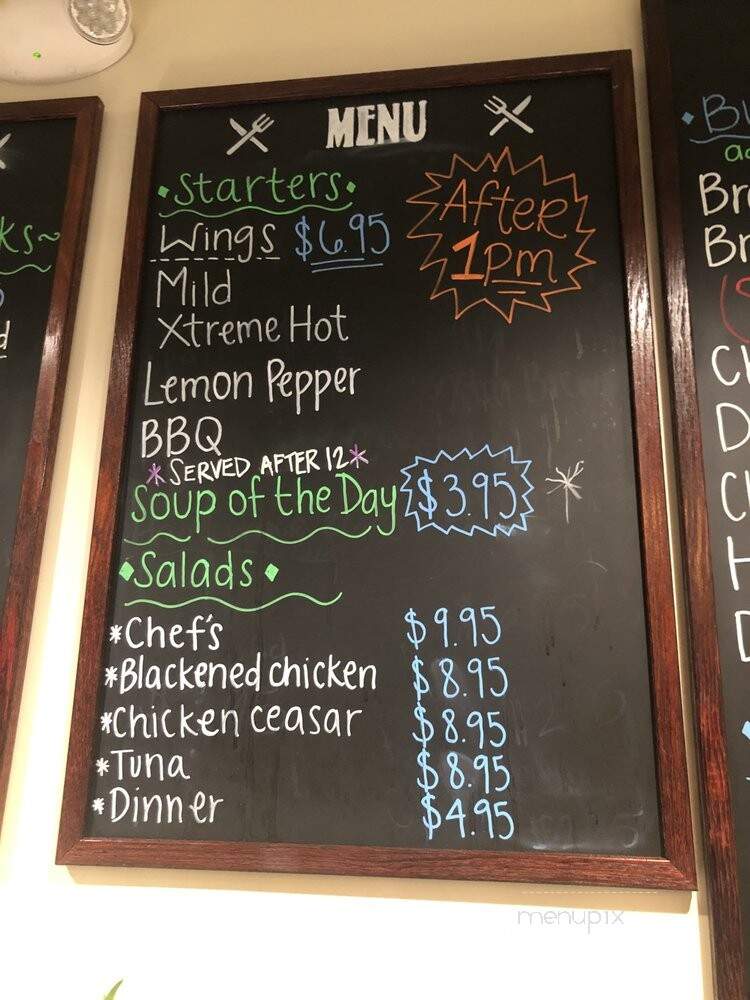 MENU
•Starters•
After
1pm
Wings $6.95
Mild
Xtreme Hot
Lemon Pepper
BBQ
*SERVED AFTER 12*
Soup of the Day $3.95
•Salads•
*Chef's $9.95
*Blackened chicken $8.95
*Chicken ceasar $8.95
*Tuna $8.95
*Dinner $4.95
menupix